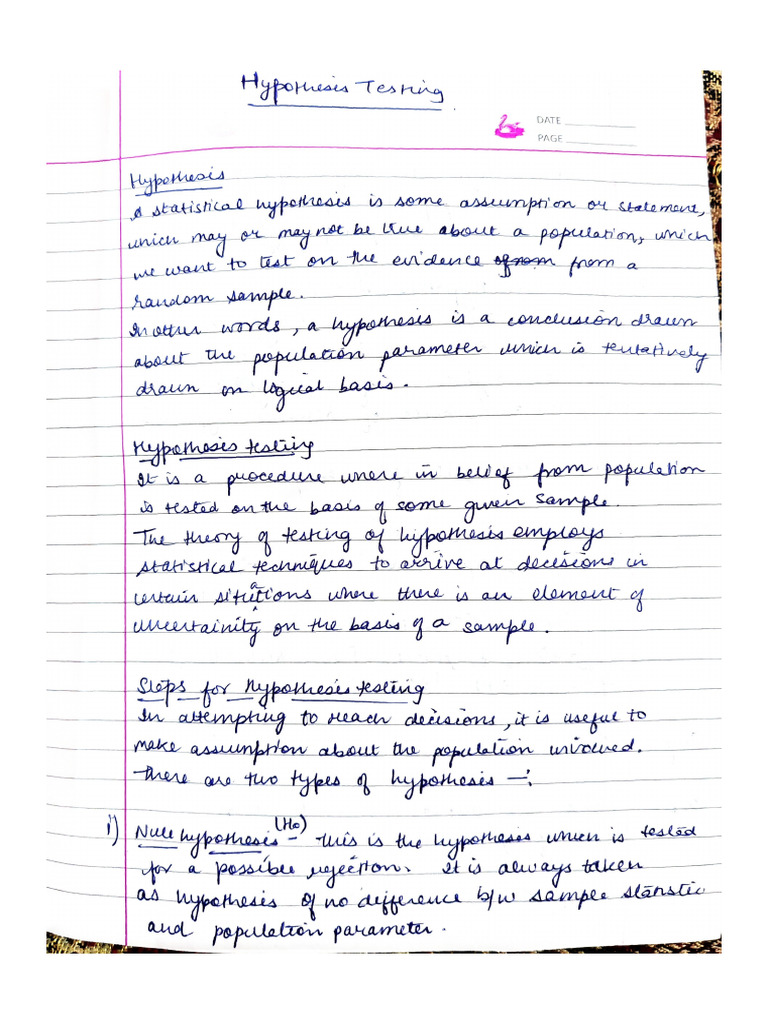 Hypothesis Testing
DATE
PAGE
Hypothesis
A statistical hypothesis is some assumption or statement,
which may or may not be true about a population, which
we want to test on the evidence from a
random sample.
In other words, a hypothesis is a conclusion drawn
about the population parameter which is tentatively
drawn on logical basis.
Hypothesis testing
It is a procedure where in belief from population
is tested on the basis of some given sample.
The theory of testing of hypothesis employs
statistical techniques to arrive at decisions in
certain situations where there is an element of
uncertainity on the basis of a sample.
Steps for hypothesis testing
In attempting to reach decisions, it is useful to
make assumption about the population involved.
There are two types of hypothesis -:
i) Null hypothesis (H0) - This is the hypothesis which is tested
for a possible rejection. It is always taken
as hypothesis of no difference b/w sample statistic
and population parameter.